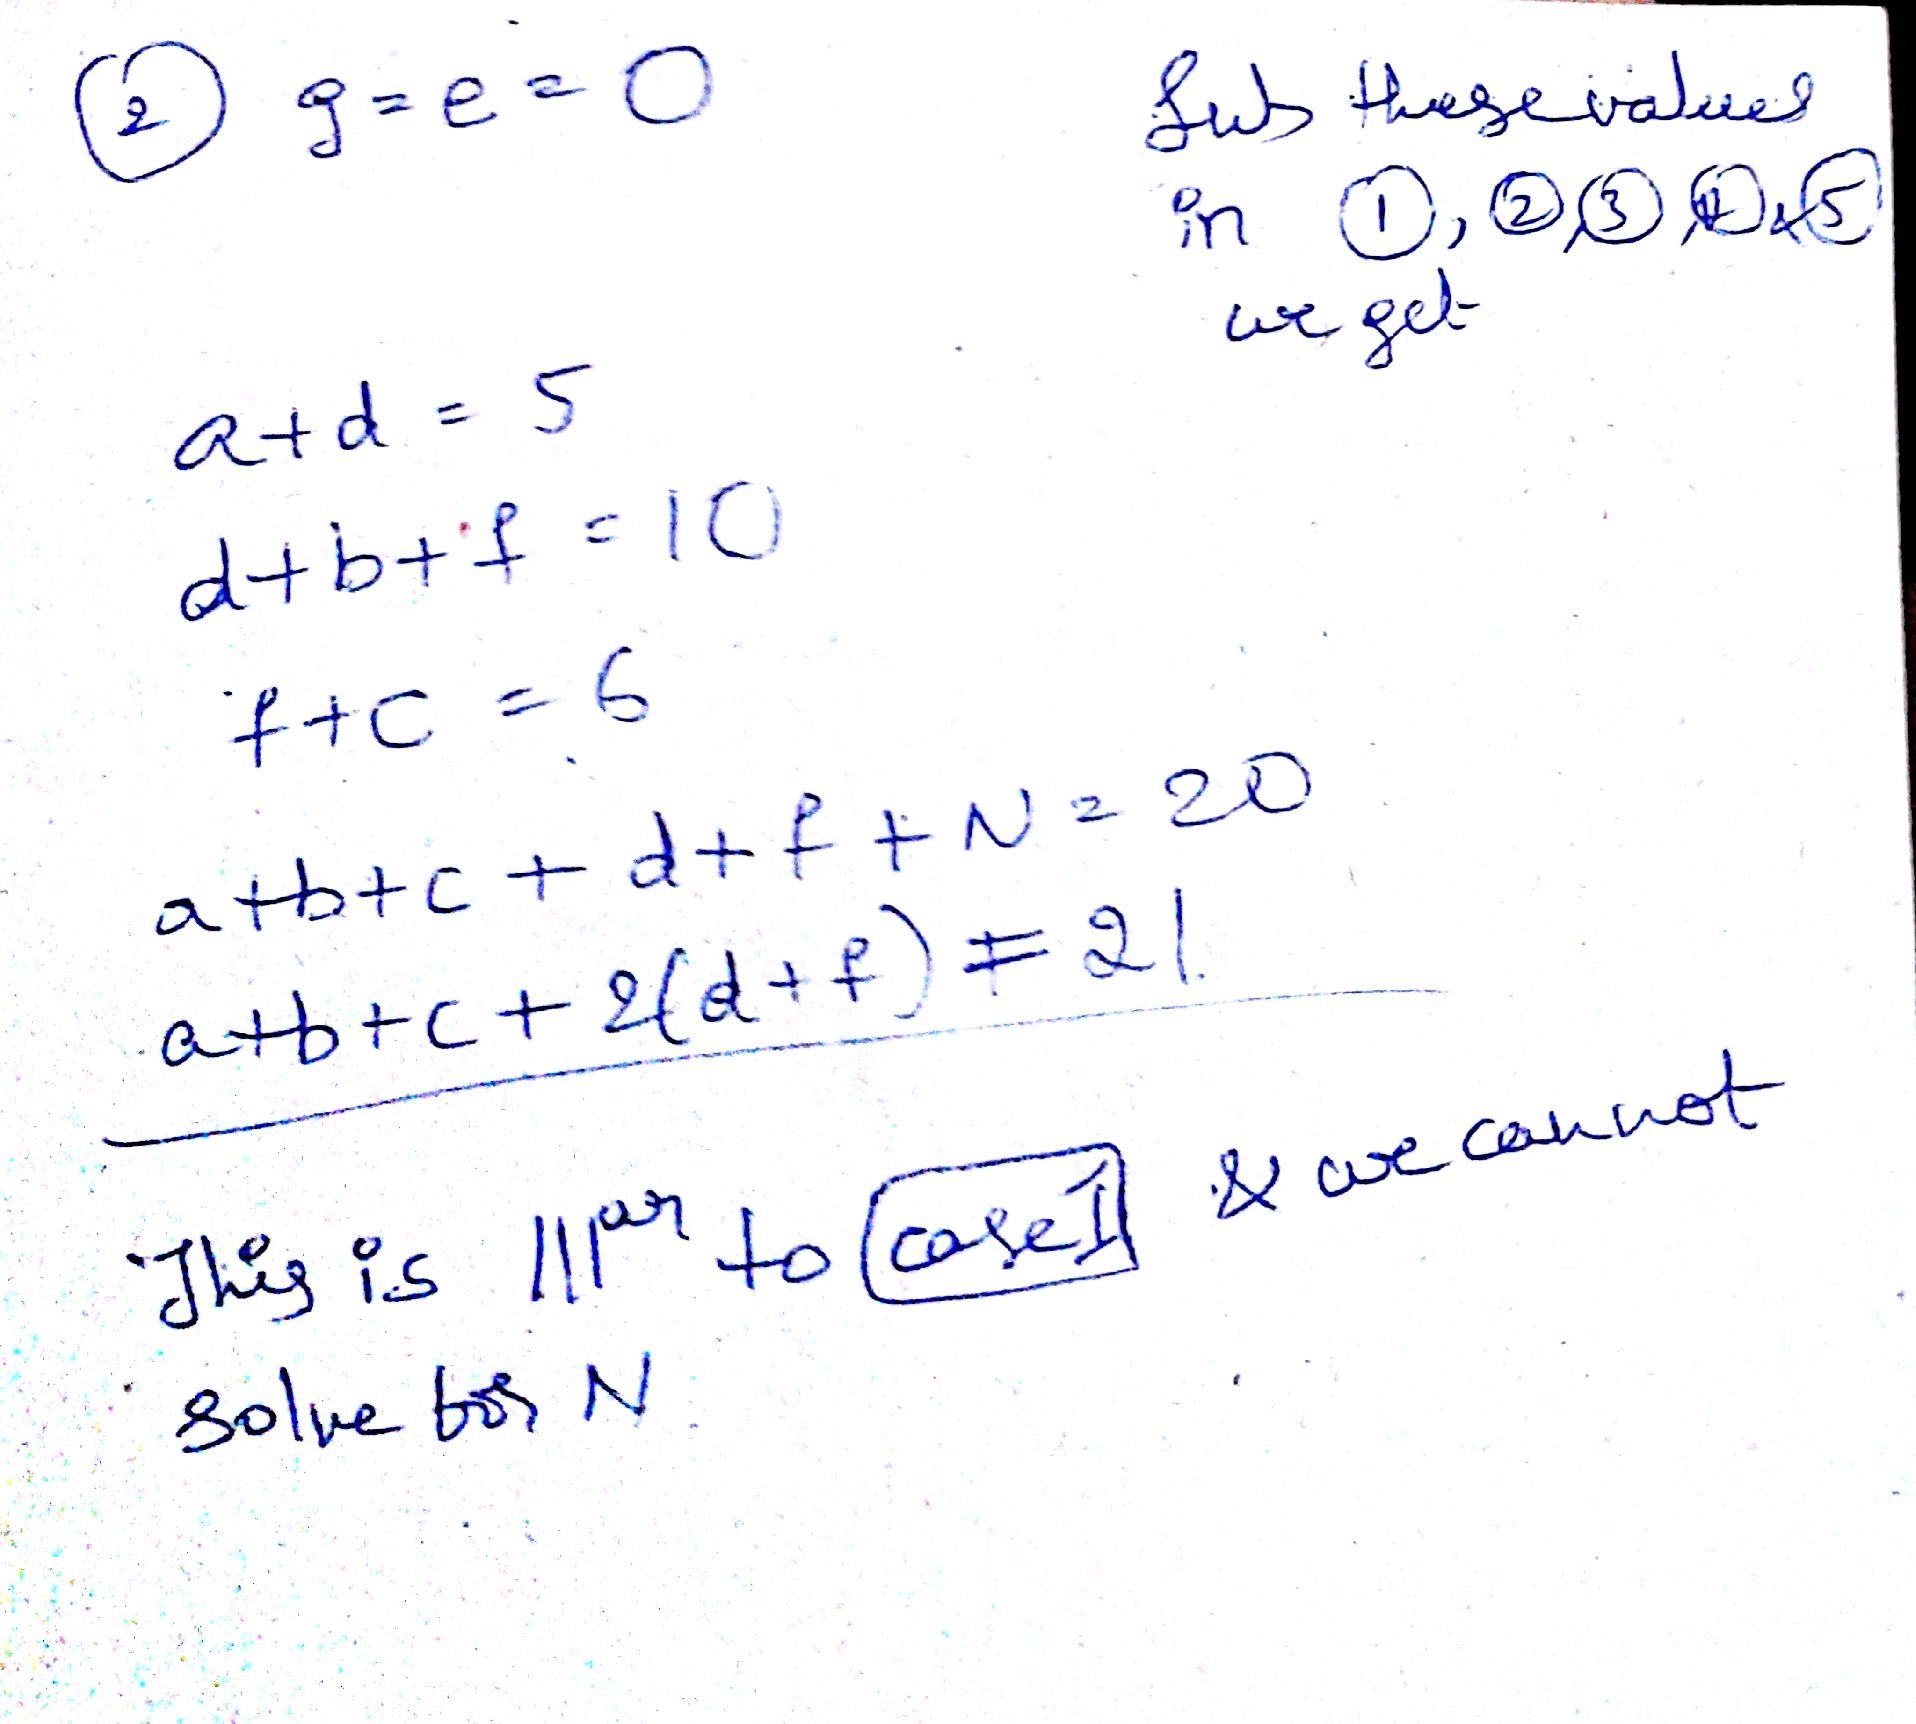 ② g=e=0
Sub these values
in ①, ②, ③, ④, & ⑤
we get
a+d = 5
d+b+f = 10
f+c = 6
a+b+c+d+f+N=20
a+b+c+2(d+f) = 21
This is |||ar to case 1 & we cannot
solve for N